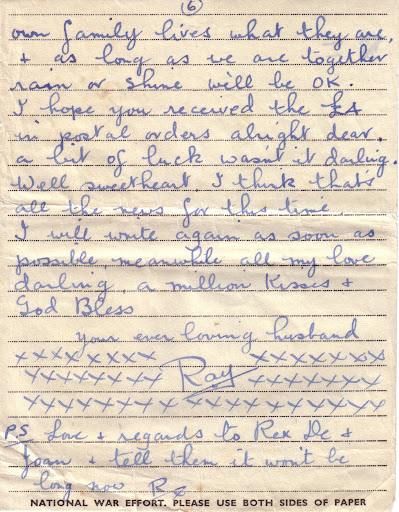 (6)
own family lives what they are,
+ as long as we are together
rain or shine will be OK.
I hope you received the £4
in postal orders alright dear.
a bit of luck wasn't it darling.
Well sweetheart, I think that's
all the news for this time.
I will write again as soon as
possible, meanwhile all my love
darling, a million kisses +
God Bless
Your ever loving husband
xxxxxxxx xxxxxxxx
xxxxxxxx Ray xxxxxxx
xxxxxxxxxxxxxxxxxxx
PS Love + regards to Rex +
Joan + tell them it won't be
long now
NATIONAL WAR EFFORT. PLEASE USE BOTH SIDES OF PAPER